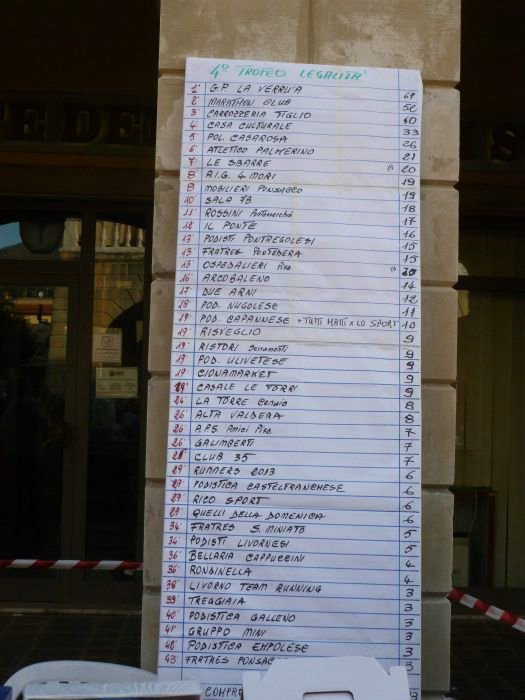 4° TROFEO LEGALITA'
1° G.P. LA VERRUA
2° MARATHON CLUB 52
3° CARROZZERIA TIGLIO 40
4 CASA CULTURALE 33
5 POL. CASAROSA 26
6° ATLETICO PALMERINO 21
7 LE SBARRE (1) 20
8° A.I.G. 4 MORI 19
8 MOBILIERI PONSACCO 19
10° SALA 78 18
11° ROSSINI Pontasserchio 17
12 IL PONTE 16
13° PODISTI PONTREGOLESI 15
13° FRATRES PONTEDERA 15
13° OSPEDALIERI Pisa (1)
16 ARCOBALENO 14
17° DUE ARNI 12
18° POD. NUGOLESE 11
19° POD. CAPANNESE + TUTTI MATTI X LO SPORT 10
19 RISVEGLIO 9
19° RISTORI Serramenti 9
19° POD. ULIVETESE 9
19° CIONAMARKET 9
CASALE LE TORRI 9
24° LA TORRE Cenaia 8
26° ALTA VALDERA 8
26° A.P.S. Amici Pisa 7
26° GALIMBERTI 7
CLUB 35 7
29° RUNNERS 2013 6
29° PODISTICA CASTELFRANCHESE 6
29 RICO SPORT 6
29° QUELLI DELLA DOMENICA 6
34° FRATRES S. MINIATO 5
34° PODISTI LIVORNESI 5
36° BELLARIA CAPPUCCINI 4
36° RONDINELLA 4
38° LIVORNO TEAM RUNNING 3
39° TREGGIAIA 3
40° PODISTICA GALLENO 3
41° GRUPPO MINI 3
42° PODISTICA EMPOLESE 3
43 FRATRES PONSAC 3
COMPR